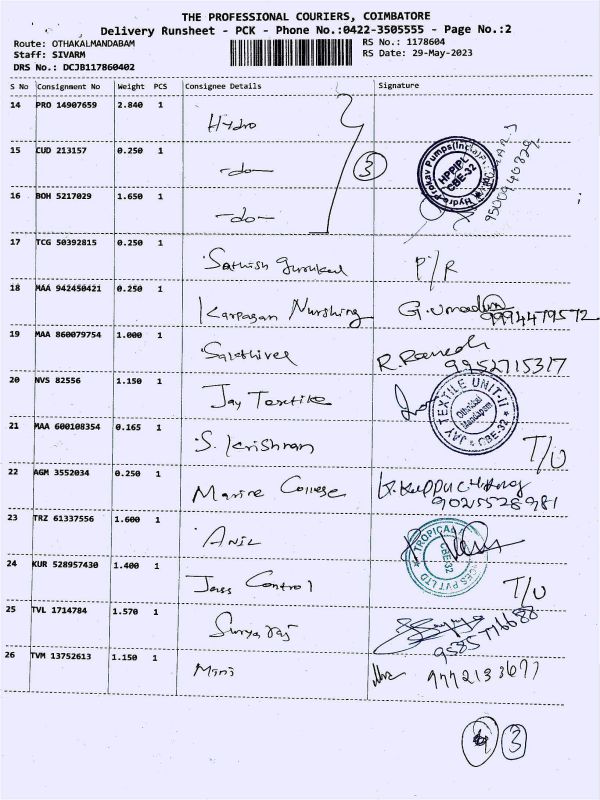 THE PROFESSIONAL COURIERS, COIMBATORE
Delivery Runsheet - PCK - Phone No.:0422-3505555 - Page No.:2
Route: OTHAKALMANDABAM
Staff: SIVARM
DRS No.: DCJB117860402
RS No.: 1178604
RS Date: 29-May-2023
S No Consignment No Weight PCS Consignee Details Signature
14 PRO 14907659 2.840 1 Hydro
15 CUD 213157 0.250 1 -do-
16 BOH 5217029 1.650 1 -do-
3
HPPIPL
CBE-32
17 TCG 50392815 0.250 1 Sathish P/R
18 MAA 942450421 0.250 1 Karpagan Nurshing G.Umadevi
9994479572
19 MAA 860079754 1.000 1 Sakthivel R. Ramesh
9952715317
20 NVS 82556 1.150 1 Jay Textile
JAY TEXTILE UNIT-II
Othakal
Mandapam
CBE-32
21 MAA 600108354 0.165 1 S. Krishnan T/U
22 AGM 3552034 0.250 1 Marine College
9025528981
23 TRZ 61337556 1.600 1 Anil
CBE-32
24 KUR 528957430 1.400 1 Jass Control T/U
25 TVL 1714784 1.570 1 Surya raj
9585776688
26 TVM 13752613 1.150 1 Mini
3